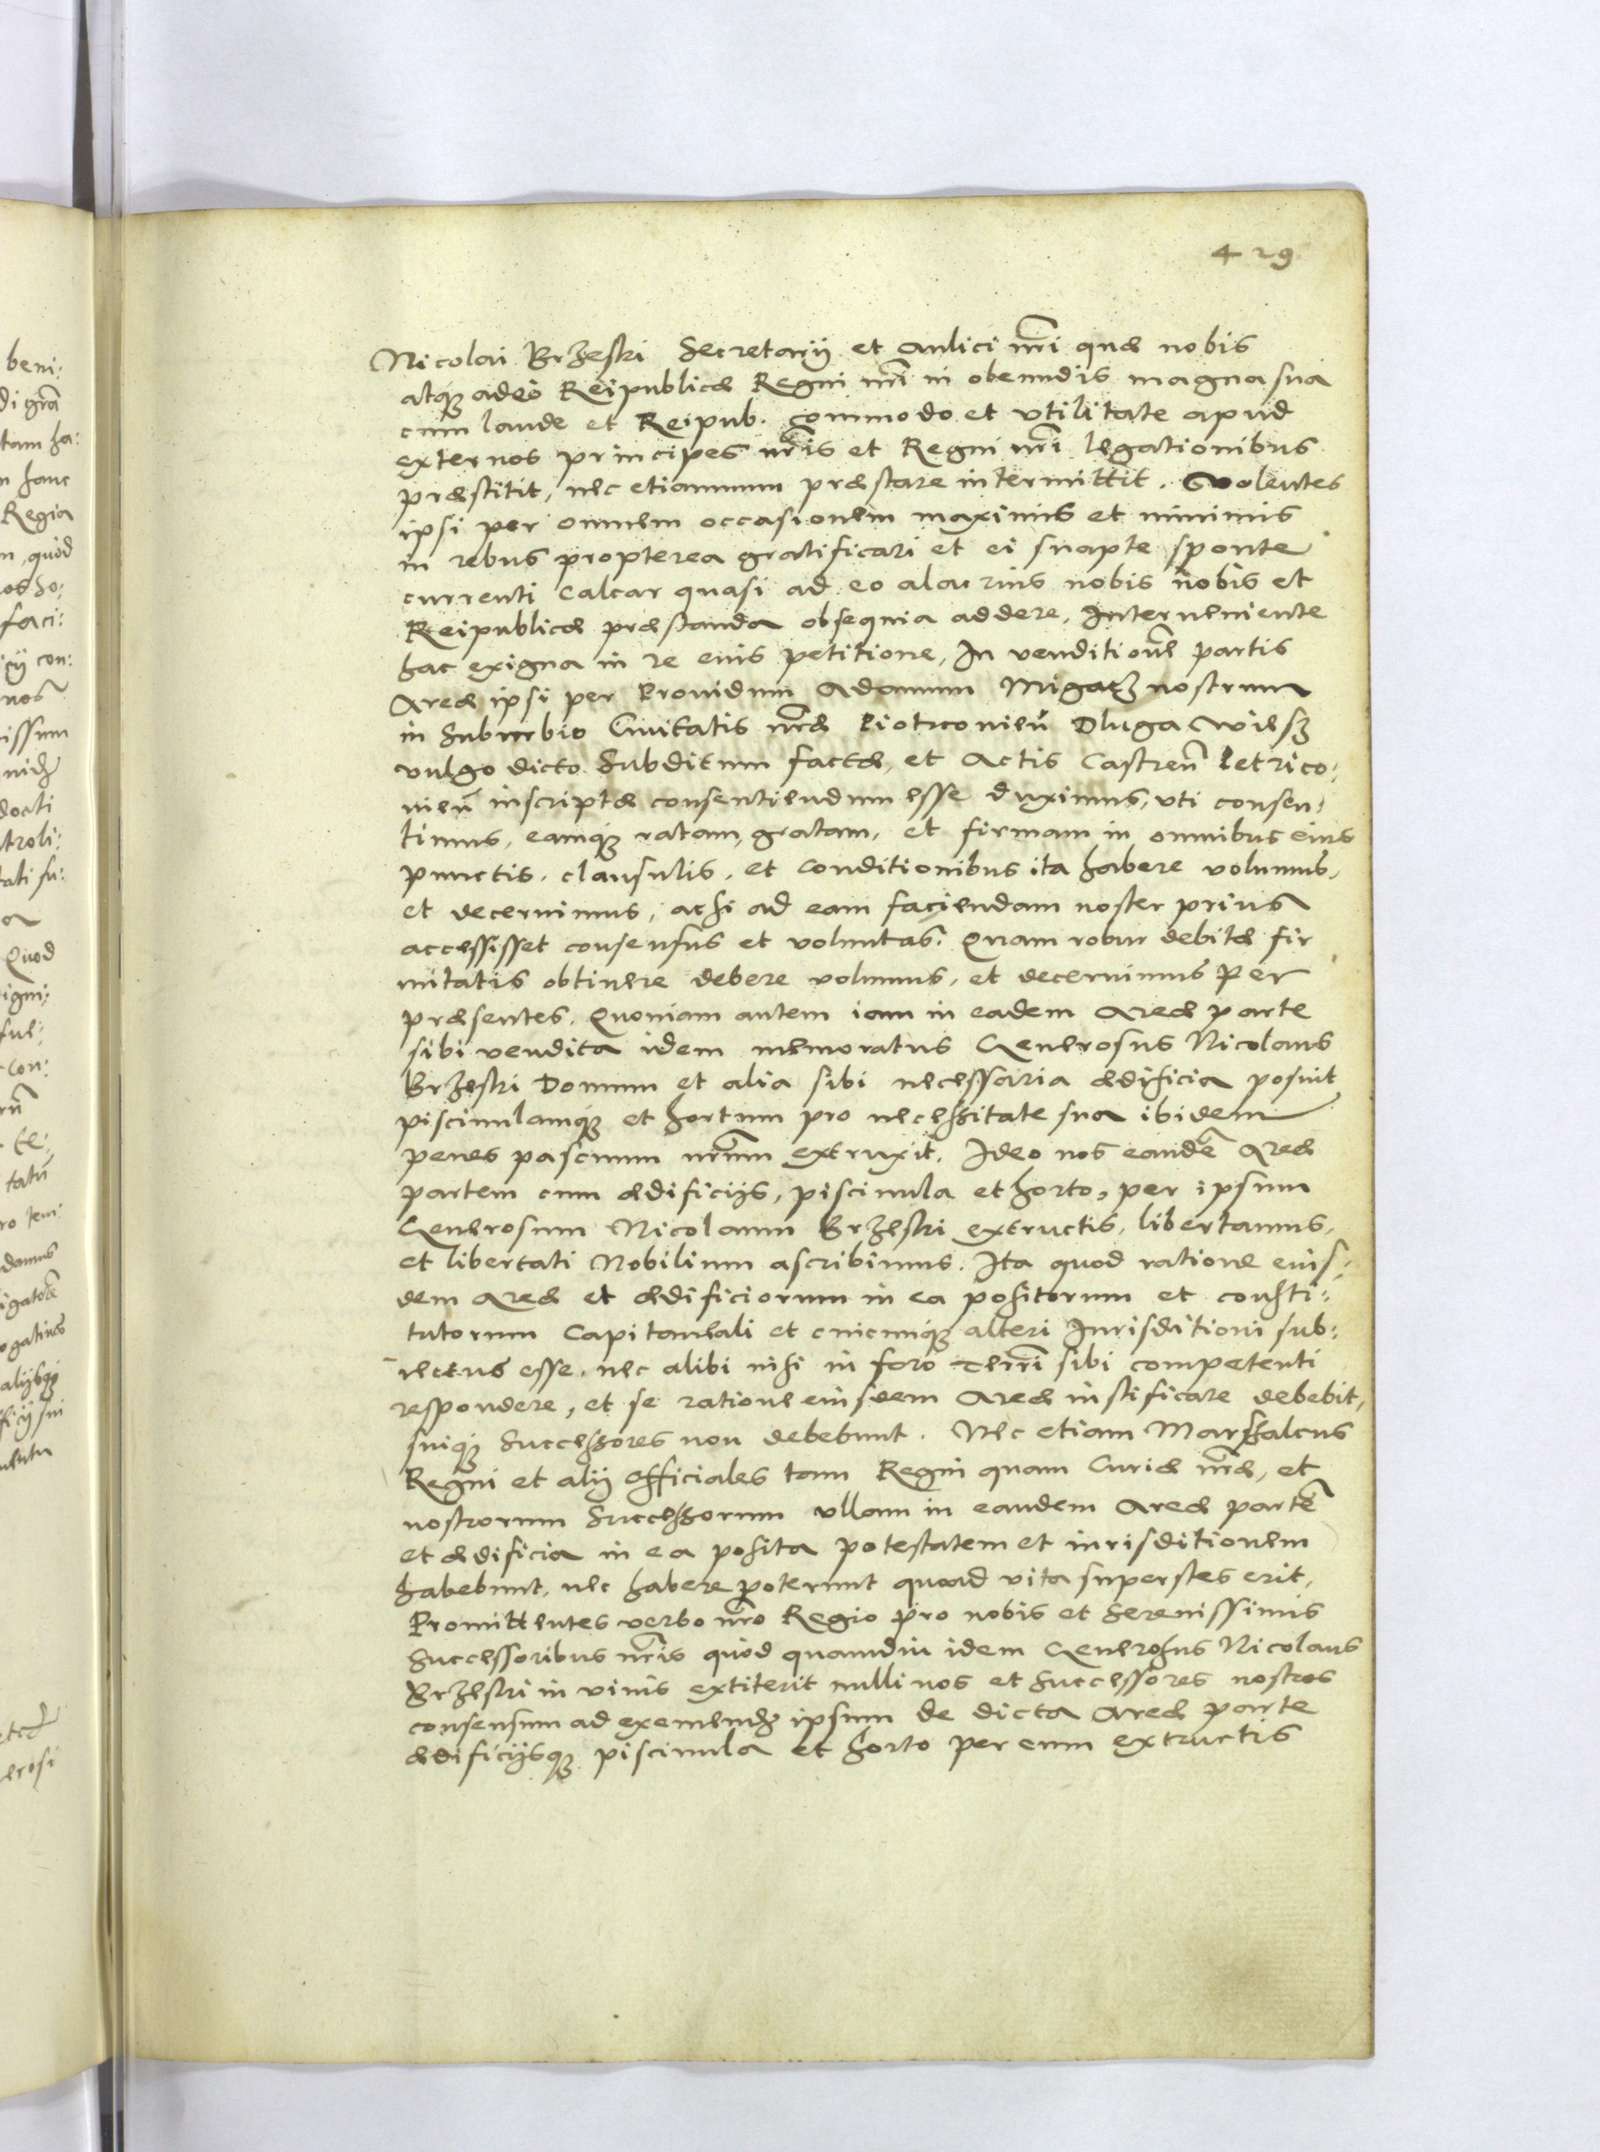 429
Nicolai Brzeski Secretarij et Aulici nri quæ nobis
atq; adeo Reipublicæ Regni nri in obeundis magna sua
cum laude et Reipub. commodo et vtilitate apud
externos principes nris et Regni nri legationibus
præstitit, nec etiamnum præstare intermittit. Volentes
ipsi per omnem occasionem maximis et minimis
in rebus propterea gratificari et ei suapte sponte
currenti calcar quasi ad eo alacrius nobis nobis et
Reipublicæ præstanda obsequia addere, Interueniente
hac exigua in re eius petitione, In venditione partis
Areæ ipsi per Prouidum Adamum nostrum
in Suburbio Ciuitatis nræ Piotrconien Dluga Wiesz
vulgo dicto Subditum factæ, et Actis Castren Petrico:
nien inscriptæ consentiendum esse duximus, vti consen:
timus, eamq; ratam, gratam, et firmam in omnibus eius
punctis, clausulis, et conditionibus ita habere volumus,
et decernimus, ac si ad eam faciendam noster prius
accessisset consensus et voluntas. Quam robur debitæ fir
mitatis obtinere debere volumus, et decernimus per
præsentes. Quoniam autem iam in eadem Areæ parte
sibi vendita idem memoratus Generosus Nicolaus
Brzeski Domum et alia sibi necessaria ædificia posuit
piscinulamq; et hortum pro necessitate sua ibidem
penes pascuum nrum extruxit. Ideo nos eande Areæ
partem cum ædificijs, piscinula et horto, per ipsum
Generosum Nicolaum Brzeski extructis, libertamus,
et libertati Nobilium ascribimus. Ita quod ratione eius:
dem Areæ et ædificiorum in ea positorum et consti:
tutorum Capitaneali et cuicunq; alteri Iurisditioni sub:
iectus esse, nec alibi nisi in foro terri sibi competenti
respondere, et se ratione eiusdem Areæ iustificare debebit,
suiq; Successores non debebunt. Nec etiam Marsalcus
Regni et alij Officiales tam Regni quam Curiæ nræ, et
nostrorum Successorum vllam in eandem Areæ parte
et ædificia in ea posita potestatem et iurisditionem
habebunt, nec habere poterunt quoad vita superstes erit,
Promittentes verbo nro Regio pro nobis et Serenissimis
Successoribus nris quod quamdiu idem Generosus Nicolaus
Brzeski in viuis extiterit nulli nos et Successores nostros
consensum ad eximend ipsum de dicta Areæ parte
ædificijsq; piscinula et horto per eum extructis